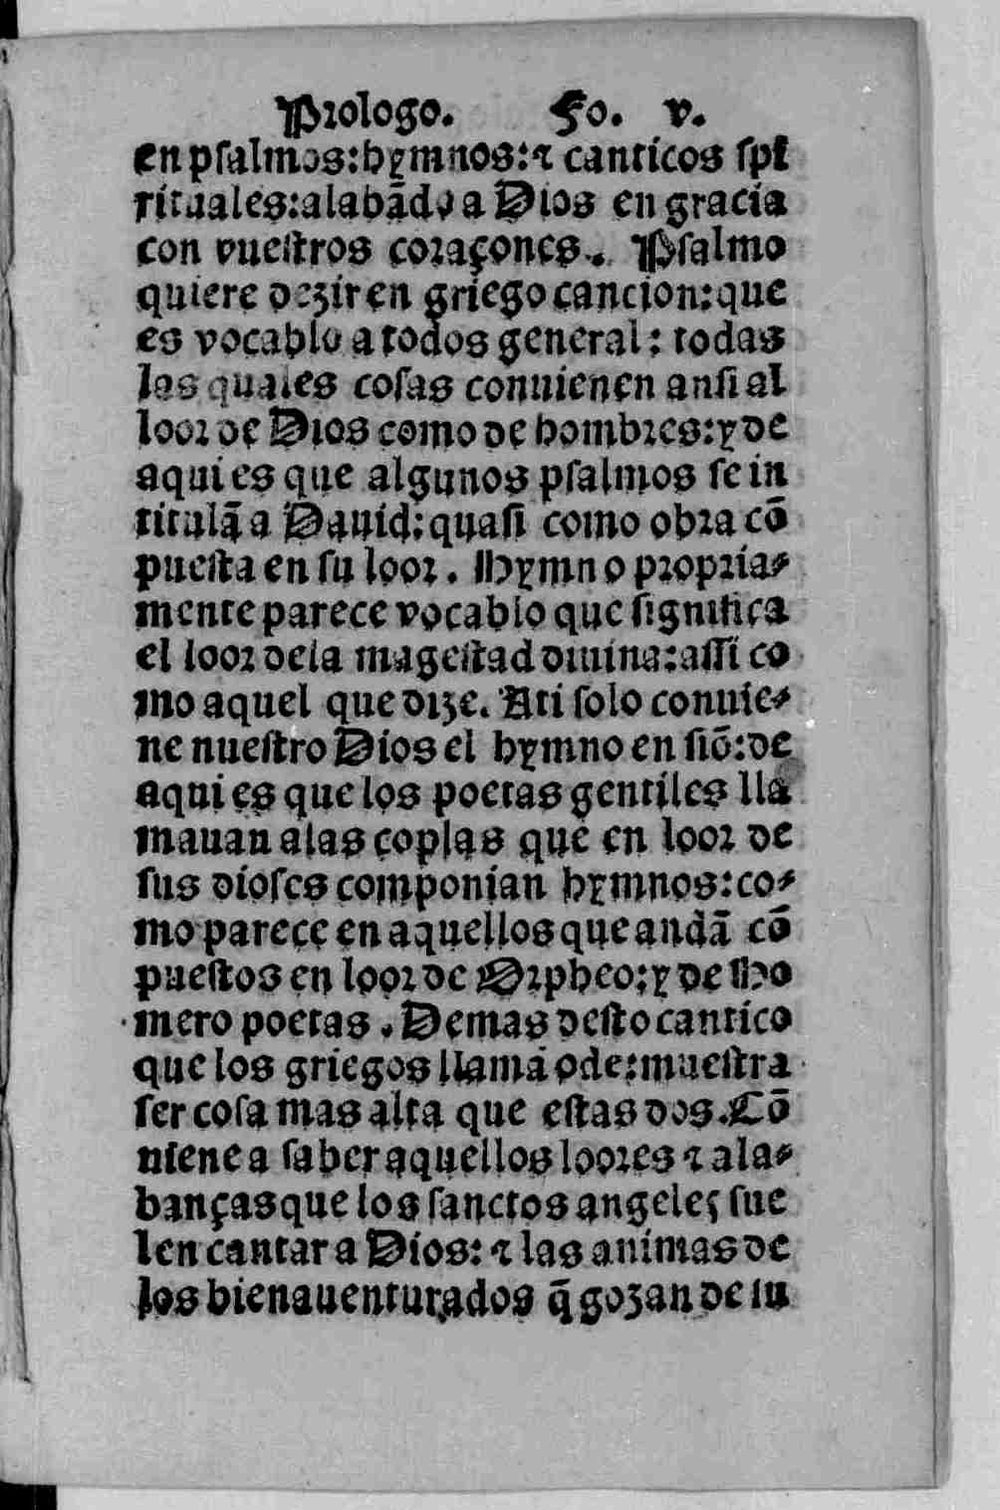 Prologo. Fo. v.
en psalmos: hymnos: ⁊ canticos spi
rituales: alabādo a Dios en gracia
con vuestros coraçones. Psalmo
quiere dezir en griego cancion: que
es vocablo a todos general: todas
las quales cosas conuienen ansi al
loor de Dios como de hombres: y de
aqui es que algunos psalmos se in
titulā a Dauid: quasi como obra cō
puesta en su loor. Hymno propria-
mente parece vocablo que significa
el loor dela magestad diuina: assi co
mo aquel que dize. Ati solo conuie-
ne nuestro Dios el hymno en siō: de
aqui es que los poetas gentiles lla
mauan alas coplas que en loor de
sus dioses componian hymnos: co-
mo parece en aquellos que andā cō
puestos en loor de Orpheo: y de Ho
mero poetas. Demas desto cantico
que los griegos llamā ode: muestra
ser cosa mas alta que estas dos. Cō
uiene a saber aquellos loores ⁊ ala-
banças que los sanctos angeles sue
len cantar a Dios: ⁊ las animas de
los bienauenturados q̄ gozan de su